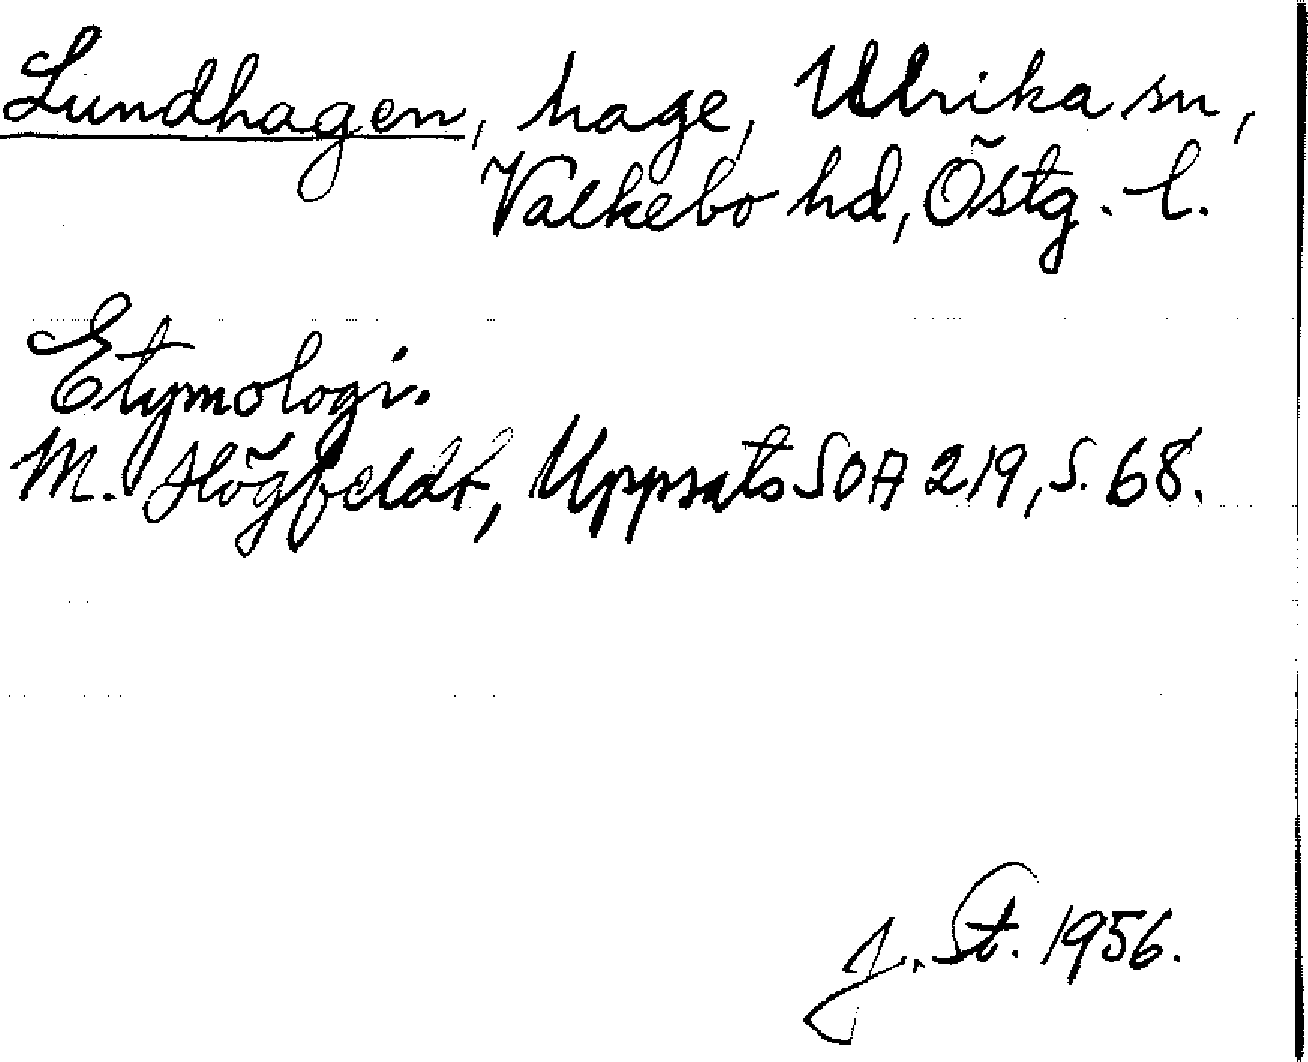 Lundhagen, hage, Ulrika sn,
Valkebo hd, Östg. l.
Etymologi.
M. Högfeldt, Uppsats SOA 219, s. 68.
J. St. 1956.